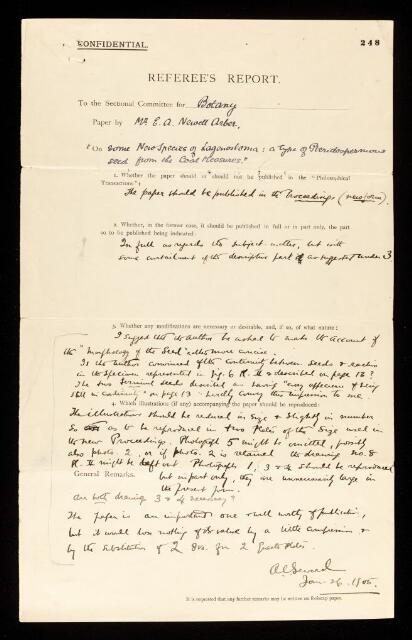 CONFIDENTIAL.
248
REFEREE'S REPORT.
To the Sectional Committee for Botany
Paper by Mr E. A. Newell Arber.
"On some New Species of Lagenostoma: a type of Pteridospermous
seed from the Coal Measures."
1. Whether the paper should or should not be published in the "Philosophical
Transactions":
The paper should be published in the Proceedings (new form).
2. Whether, in the former case, it should be published in full or in part only, the part
so to be published being indicated:
In full as regards the subject matter, but with
some curtailment of the descriptive part as suggested under 3
3. Whether any modifications are necessary or desirable, and, if so, of what nature:
I suggest the author be asked to make the account of
the "Morphology of the Seed" rather more concise.
Is the author convinced of the continuity between seeds & rachis
in the specimen represented in fig. 6 R. H. & described on page 12?
The two terminal seeds described as having "every appearance of being
still in continuity" on page 13 hardly convey this impression to me.
4. Which illustrations (if any) accompanying the paper should be reproduced:
The illustrations should be reduced in size & slightly in number
so as to be reproduced in two plates of the size used in
the new Proceedings. Photograph 5 might be omitted, possibly
also photo. 2, or if photo. 2 is retained the drawing no. 8
R. H. might be left out. Photographs 1, 3 & 4 should be reproduced
General Remarks.
but in part only, they are unnecessarily large in
the present form.
are both drawings 3 & 4 necessary?
The paper is an important one & well worthy of publication,
but it would lose nothing of its value by a little compression &
by the substitution of 2 8vo. for 2 quarto plates.
A C Seward
Jan. 26. 1905.
It is requested that any further remarks may be written on foolscap paper.